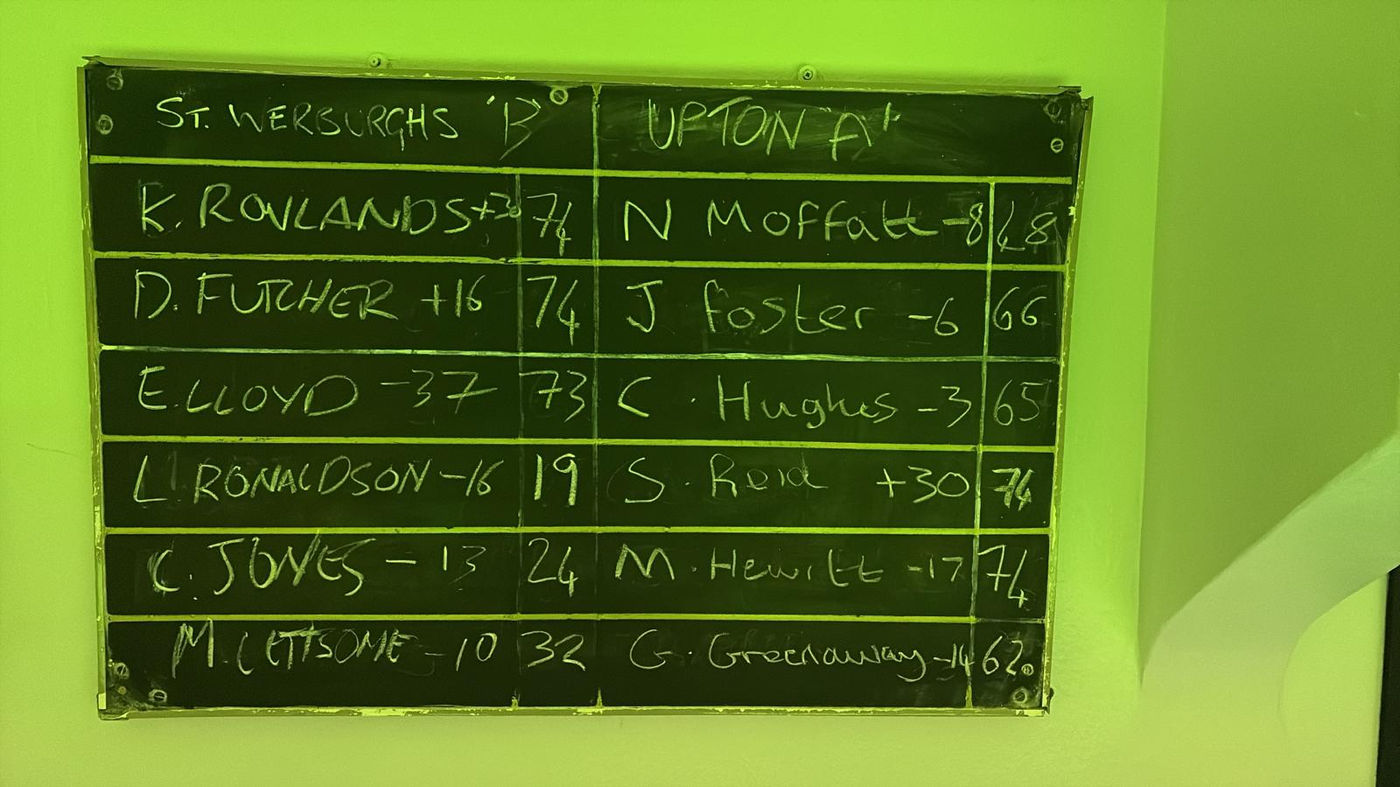 ST. WERBURGHS 'B' UPTON 'A'
K. ROWLANDS +30 74 N Moffatt -8 68
D. FUTCHER +16 74 J foster -6 66
E. LLOYD -37 73 C. Hughes -3 65
L. RONALDSON -16 19 S. Reid +30 74
C. JONES -13 24 M. Hewitt -17 74
M. LETTSOME -10 32 G. Greenaway -14 62